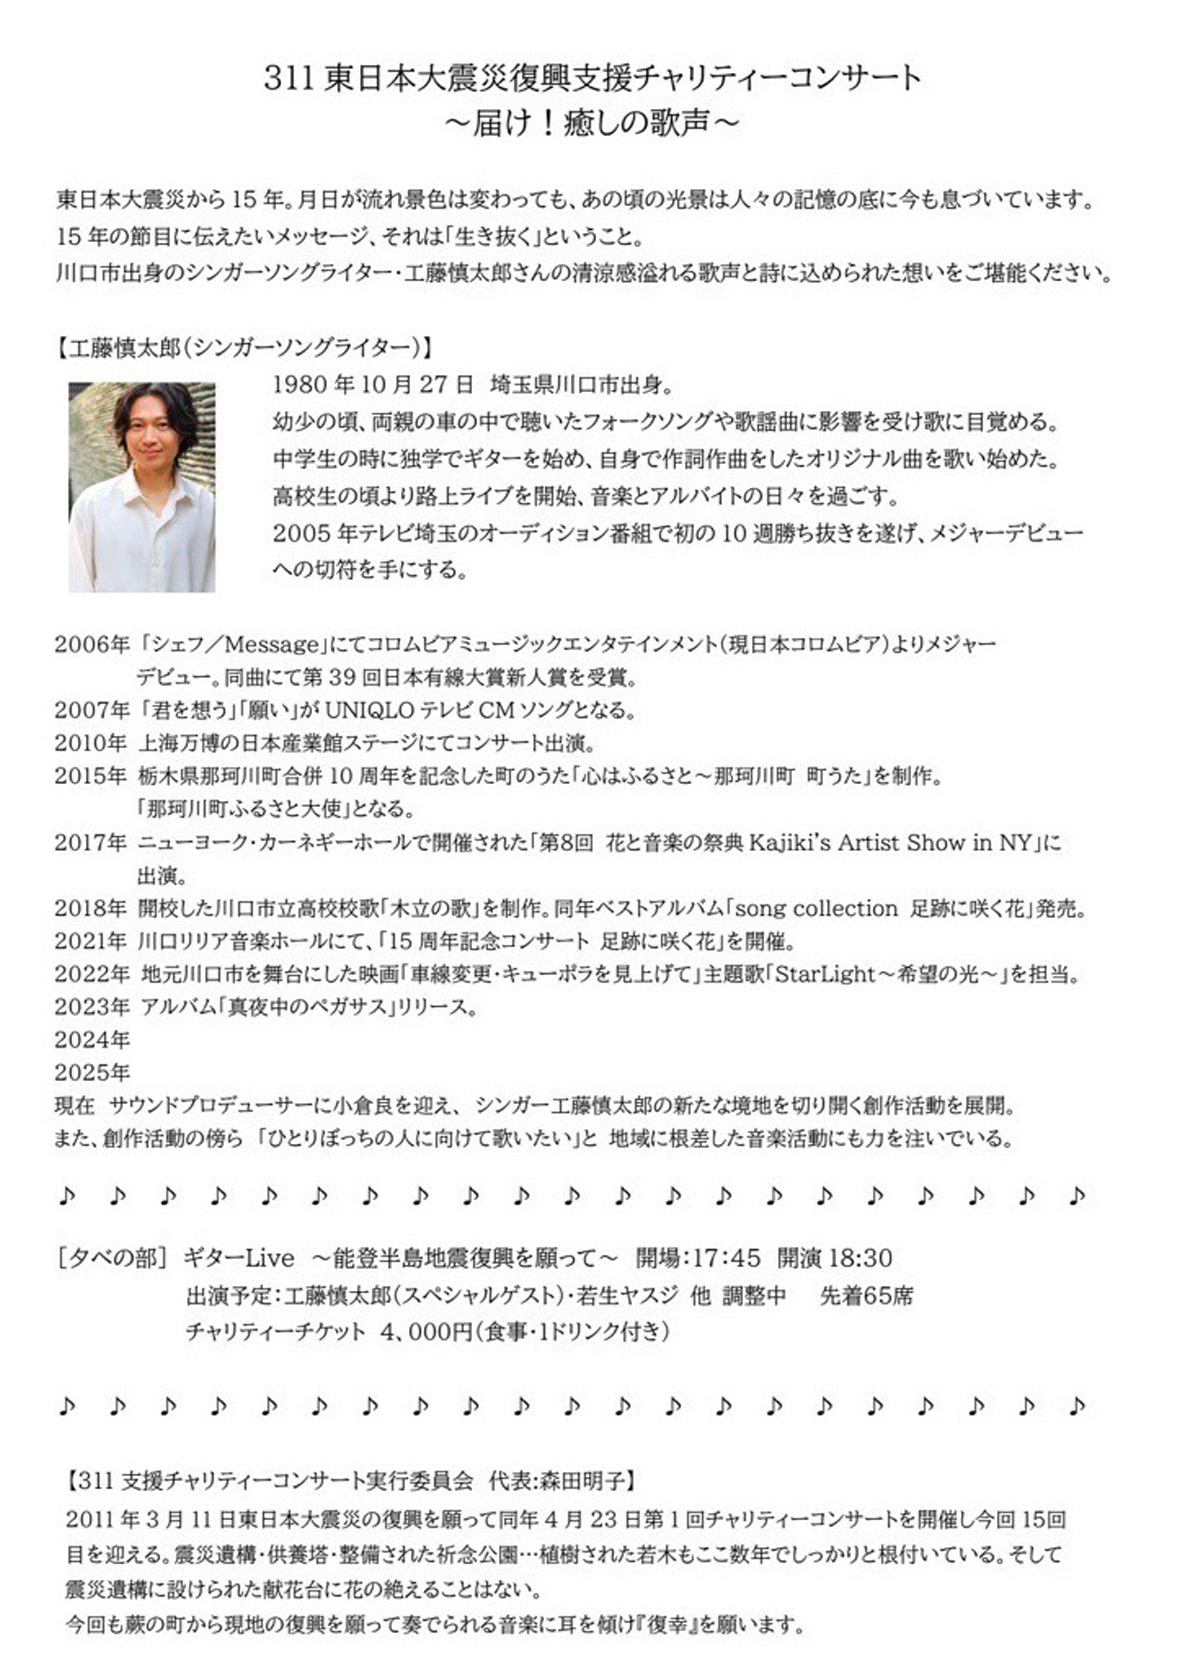 311東日本大震災復興支援チャリティーコンサート
～届け！癒しの歌声～
東日本大震災から15年。月日が流れ景色は変わっても、あの頃の光景は人々の記憶の底に今も息づいています。
15年の節目に伝えたいメッセージ、それは「生き抜く」ということ。
川口市出身のシンガーソングライター・工藤慎太郎さんの清涼感溢れる歌声と詩に込められた想いをご堪能ください。
【工藤慎太郎（シンガーソングライター）】
1980年10月27日　埼玉県川口市出身。
幼少の頃、両親の車の中で聴いたフォークソングや歌謡曲に影響を受け歌に目覚める。
中学生の時に独学でギターを始め、自身で作詞作曲をしたオリジナル曲を歌い始めた。
高校生の頃より路上ライブを開始、音楽とアルバイトの日々を過ごす。
2005年テレビ埼玉のオーディション番組で初の10週勝ち抜きを遂げ、メジャーデビュー
への切符を手にする。
2006年「シェフ／Message」にてコロムビアミュージックエンタテインメント（現日本コロムビア）よりメジャー
デビュー。同曲にて第39回日本有線大賞新人賞を受賞。
2007年「君を想う」「願い」がUNIQLOテレビCMソングとなる。
2010年 上海万博の日本産業館ステージにてコンサート出演。
2015年 栃木県那珂川町合併10周年を記念した町のうた「心はふるさと～那珂川町 町うた」を制作。
「那珂川町ふるさと大使」となる。
2017年 ニューヨーク・カーネギーホールで開催された「第8回 花と音楽の祭典Kajiki's Artist Show in NY」に
出演。
2018年 開校した川口市立高校校歌「木立の歌」を制作。同年ベストアルバム「song collection 足跡に咲く花」発売。
2021年 川口リリア音楽ホールにて、「15周年記念コンサート 足跡に咲く花」を開催。
2022年 地元川口市を舞台にした映画「車線変更・キューポラを見上げて」主題歌「StarLight～希望の光～」を担当。
2023年 アルバム「真夜中のペガサス」リリース。
2024年
2025年
現在　サウンドプロデューサーに小倉良を迎え、シンガー工藤慎太郎の新たな境地を切り開く創作活動を展開。
また、創作活動の傍ら 「ひとりぼっちの人に向けて歌いたい」と 地域に根差した音楽活動にも力を注いでいる。
♪ ♪ ♪ ♪ ♪ ♪ ♪ ♪ ♪ ♪ ♪ ♪ ♪ ♪ ♪ ♪ ♪ ♪ ♪ ♪ ♪
［夕べの部］ ギターLive　～能登半島地震復興を願って～　開場：17：45　開演18:30
出演予定：工藤慎太郎（スペシャルゲスト）・若生ヤスジ 他 調整中　　先着65席
チャリティーチケット　4、000円（食事・1ドリンク付き）
♪ ♪ ♪ ♪ ♪ ♪ ♪ ♪ ♪ ♪ ♪ ♪ ♪ ♪ ♪ ♪ ♪ ♪ ♪ ♪ ♪
【311支援チャリティーコンサート実行委員会　代表:森田明子】
2011年3月11日東日本大震災の復興を願って同年4月23日第1回チャリティーコンサートを開催し今回15回
目を迎える。震災遺構・供養塔・整備された祈念公園…植樹された若木もここ数年でしっかりと根付いている。そして
震災遺構に設けられた献花台に花の絶えることはない。
今回も蕨の町から現地の復興を願って奏でられる音楽に耳を傾け『復幸』を願います。